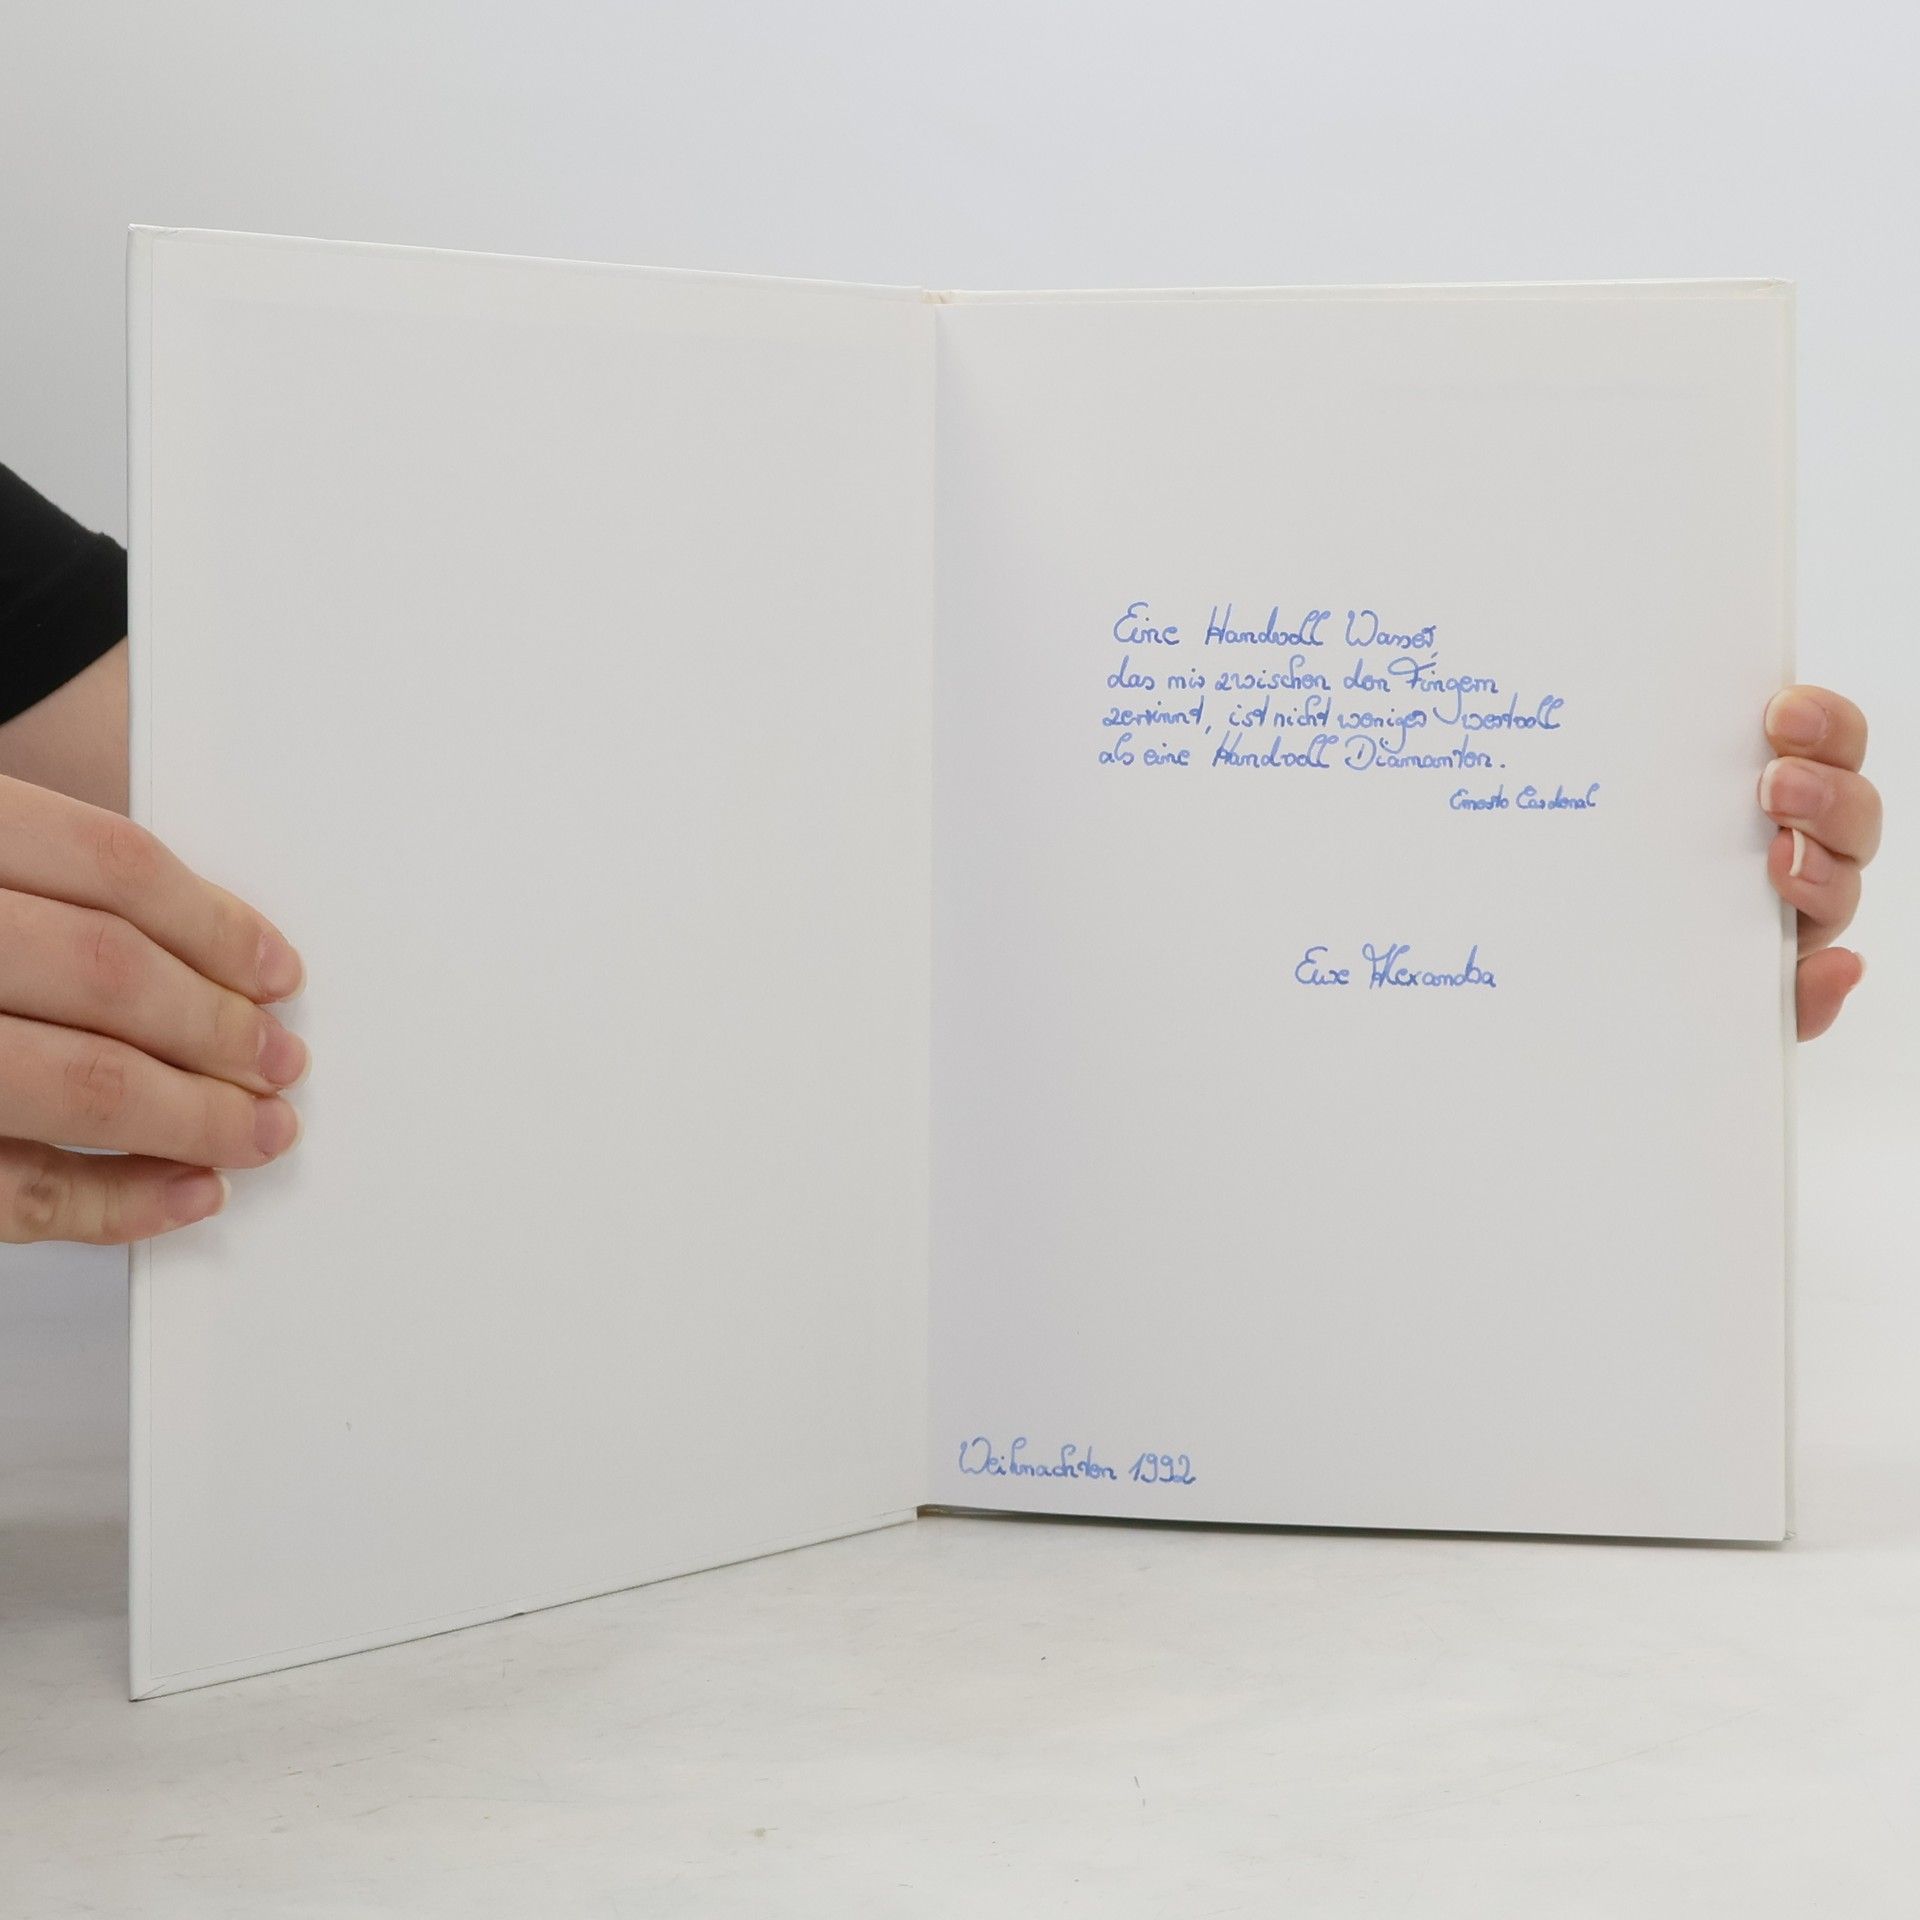 Eine Handvoll Wasser,
das mir zwischen den Fingern
zerrinnt, ist nicht weniger wertvoll
als eine Handvoll Diamanten.
Ernesto Cardenal
Eure Alexandra
Weihnachten 1992